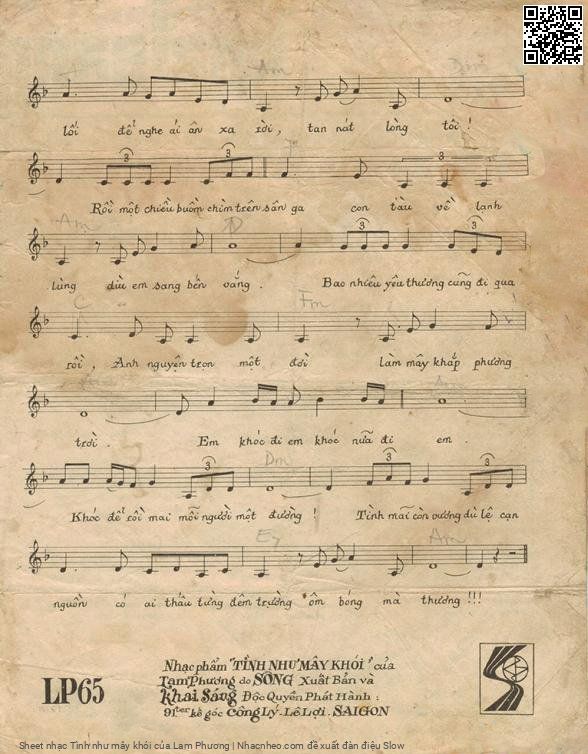 Am
lối để nghe ái ân xa rời, tan nát lòng tôi!
Rồi một chiều buồn chìm trên sân ga con tàu về lạnh
Am D
lùng đưa em sang bến vắng. Bao nhiêu yêu thương cũng đi qua
C Fm
rồi, Anh nguyện trọn một đời làm mây khắp phương
trời. Em khóc đi em khóc nữa đi em.
Dm
Khóc để rồi mai mỗi người một đường! Tình mãi còn vương dù lệ cạn
E7 Am
nguồn có ai thấu từng đêm trường ôm bóng mà thương!!!
LP65
Nhạc phẩm "TÌNH NHƯ MÂY KHÓI" của
Lam Phương do SÓNG Xuất Bản và
Khai Sáng Độc Quyền Phát Hành:
91ter kế góc Công Lý. Lê Lợi. SAIGON
Sheet nhạc Tình như mây khói của Lam Phương | Nhacnheo.com đề xuất đàn điệu Slow